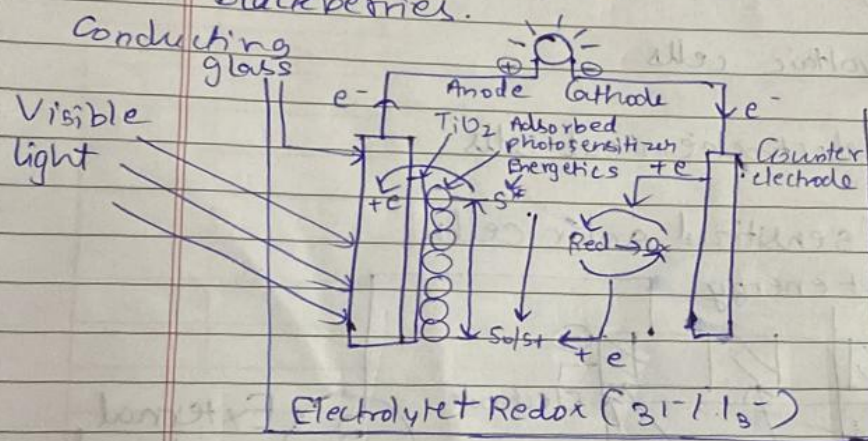 blackberries.
Conducting
glass
Visible
light
⊕ ⊖
Anode Cathode
e- e-
TiO2 Adsorbed
photosensitizer
Energetics
+e
Counter
electrode
+e
S*
Red → Ox
So/S+
+ e
Electrolyte + Redox (3I-/I3-)